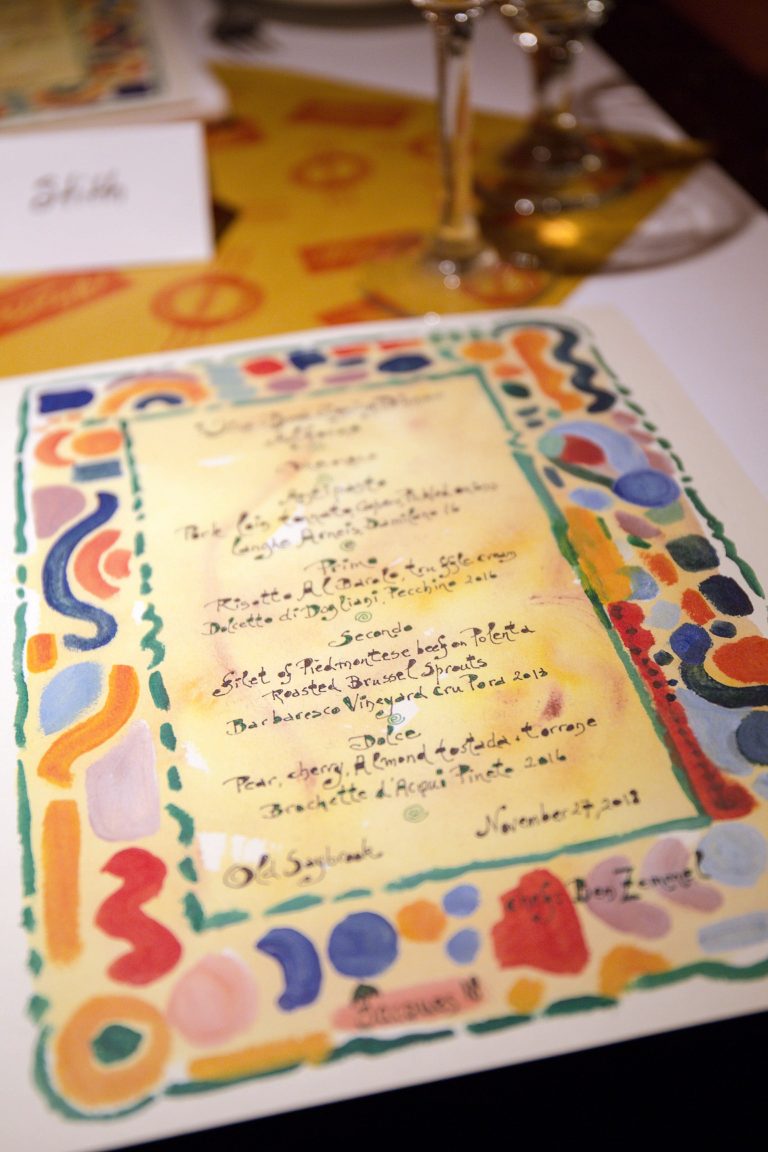 Antipasto
Pork loin, tonnato, capers, Pickled onions
Langhe Arneis, Damilano 16
Primo
Risotto Al Barolo, truffle cream
Dolcetto di Dogliani, Pecchino 2016
Secondo
Filet of Piedmontese beef on Polenta
Roasted Brussel Sprouts
Barbaresco Vineyard Cru Pora 2013
Dolce
Pear, cherry, Almond tostada + torrone
Brachette d'Acqui Pineto 2016
Old Saybrook
November 27, 2018
chef: Ben Zemmel
Jacques